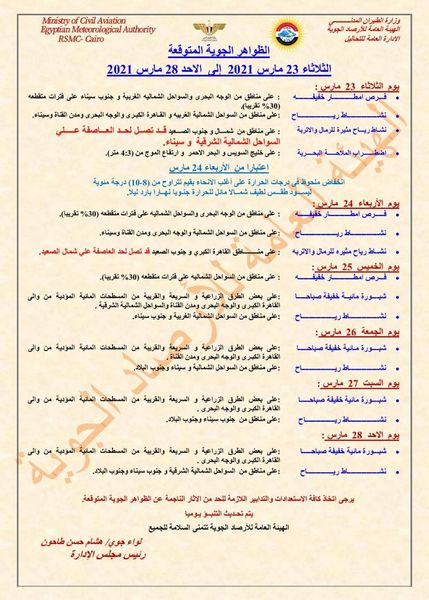 Ministry of Civil Aviation
Egyptian Meteorological Authority
RSMC- Cairo
وزارة الطيران المدني
الهيئة العامة للأرصاد الجوية
الادارة العامة للتحاليل
الظواهر الجوية المتوقعة
الثلاثاء 23 مارس 2021 إلى الاحد 28 مارس 2021
يوم الثلاثاء 23 مارس :
فرص امطار خفيفه : على مناطق من الوجه البحرى والسواحل الشمالية الغربية و جنوب سيناء على فترات متقطعه
(30% تقريبا).
نشاط رياح : على مناطق من السواحل الشمالية الغربيه و القاهرة الكبرى والوجه البحرى ومدن القناة وسيناء.
نشاط رياح مثيرة للرمال والاتربة : على مناطق من شمال و جنوب الصعيد قد تصل لحد العاصفة على
السواحل الشمالية الشرقية و سيناء.
اضطراب الملاحة البحرية : على خليج السويس و البحر الاحمر و ارتفاع الموج من (4:3 متر).
اعتبارا من الأربعاء 24 مارس
انخفاض ملحوظ في درجات الحرارة على أغلب الأنحاء بقيم تتراوح من (8-10) درجة مئوية
ليسود طقس لطيف شمالا مائل للحرارة جنوبا نهارا بارد ليلا
يوم الأربعاء 24 مارس :
فرص امطار خفيفه : على مناطق من الوجه البحرى والسواحل الشماليه على فترات متقطعه (30% تقريبا).
نشاط رياح : على مناطق من السواحل الشمالية والوجه البحرى ومدن القناة وسيناء.
نشاط رياح مثيره للرمال والاتربه : على مناطق القاهرة الكبرى و جنوب الصعيد قد تصل لحد العاصفة على شمال الصعيد.
يوم الخميس 25 مارس :
فرص امطار خفيفه : على مناطق من السواحل الشماليه على فترات متقطعه (30% تقريبا).
شبورة مائية خفيفة صباحا : على بعض الطرق الزراعية و السريعة والقريبة من المسطحات المائية المؤدية من والى
القاهرة الكبرى والوجه البحرى ومدن القناة والسواحل الشمالية الشرقية .
نشاط رياح : على مناطق من السواحل الشمالية الغربية و جنوب سيناء.
يوم الجمعة 26 مارس :
شبورة مائية خفيفة صباحا : على بعض الطرق الزراعية و السريعة والقريبة من المسطحات المائية المؤدية من والى
القاهرة الكبرى والوجه البحرى ومدن القناة .
نشاط رياح : على مناطق من السواحل الشمالية و سيناء وجنوب البلاد.
يوم السبت 27 مارس :
شبورة مائية خفيفة صباحا : على بعض الطرق الزراعية و السريعة والقريبة من المسطحات المائية المؤدية من والى
القاهرة الكبرى و الوجه البحرى .
نشاط رياح : على مناطق من جنوب سيناء وجنوب البلاد.
يوم الاحد 28 مارس :
شبورة مائية خفيفة صباحا : على بعض الطرق الزراعية و السريعة والقريبة من المسطحات المائية المؤدية من والى
القاهرة الكبرى و الوجه البحرى .
نشاط رياح : على مناطق من السواحل الشمالية الشرقية و جنوب سيناء وجنوب البلاد.
يرجى اتخاذ كافة الاستعدادات والتدابير اللازمة للحد من الاثار الناجمة عن الظواهر الجوية المتوقعة.
يتم تحديث التنبؤ يوميا
الهيئة العامة للأرصاد الجوية تتمنى السلامة للجميع
لواء جوي/ هشام حسن طاحون
رئيس مجلس الإدارة
الهيئة العامة للأرصاد الجوية